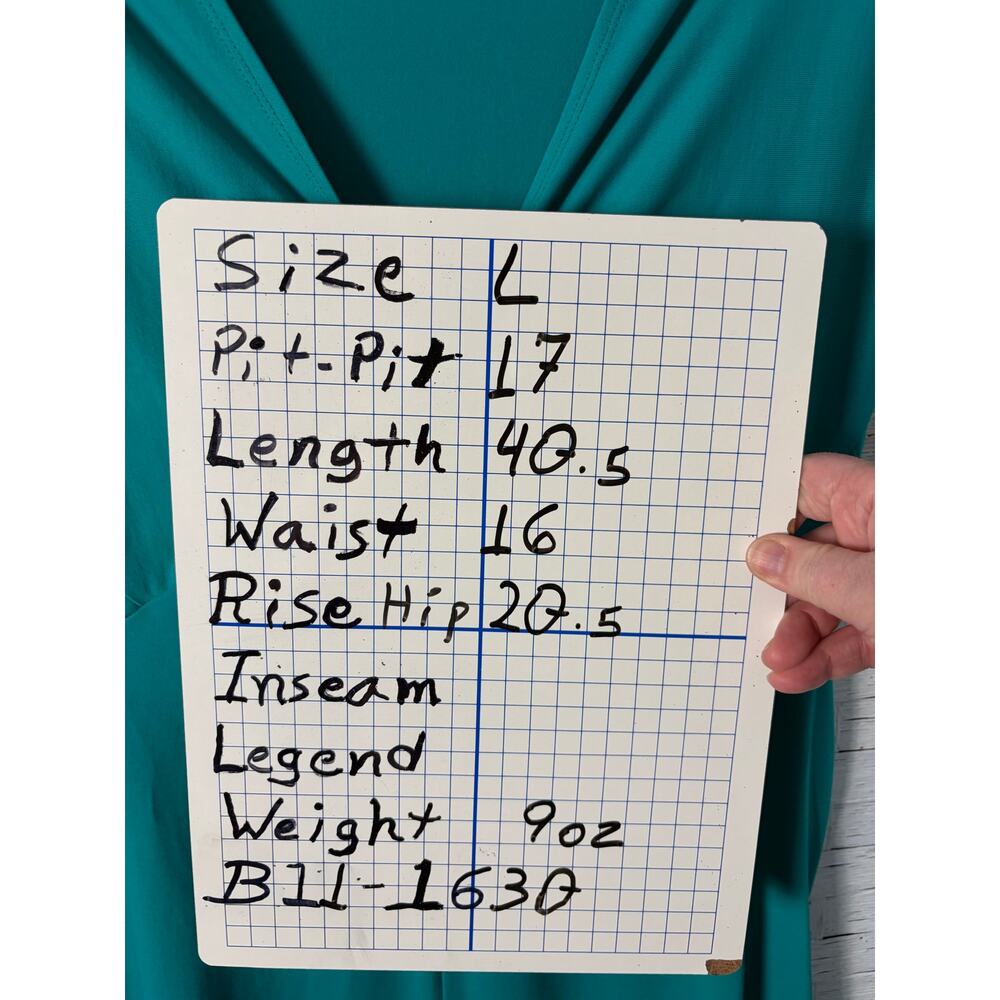 Size L
Pit-Pit 17
Length 40.5
Waist 16
Rise Hip 20.5
Inseam
Legend
Weight 9oz
B11-1630